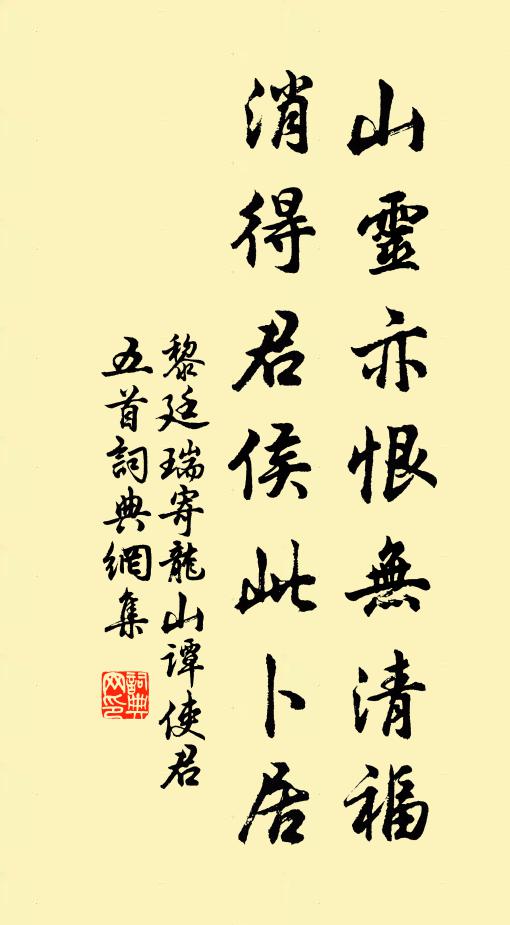 山靈亦恨無清福
消得君侯此卜居
黎廷瑞寄龍山譚使君
五首詞典網集
詞典
网印